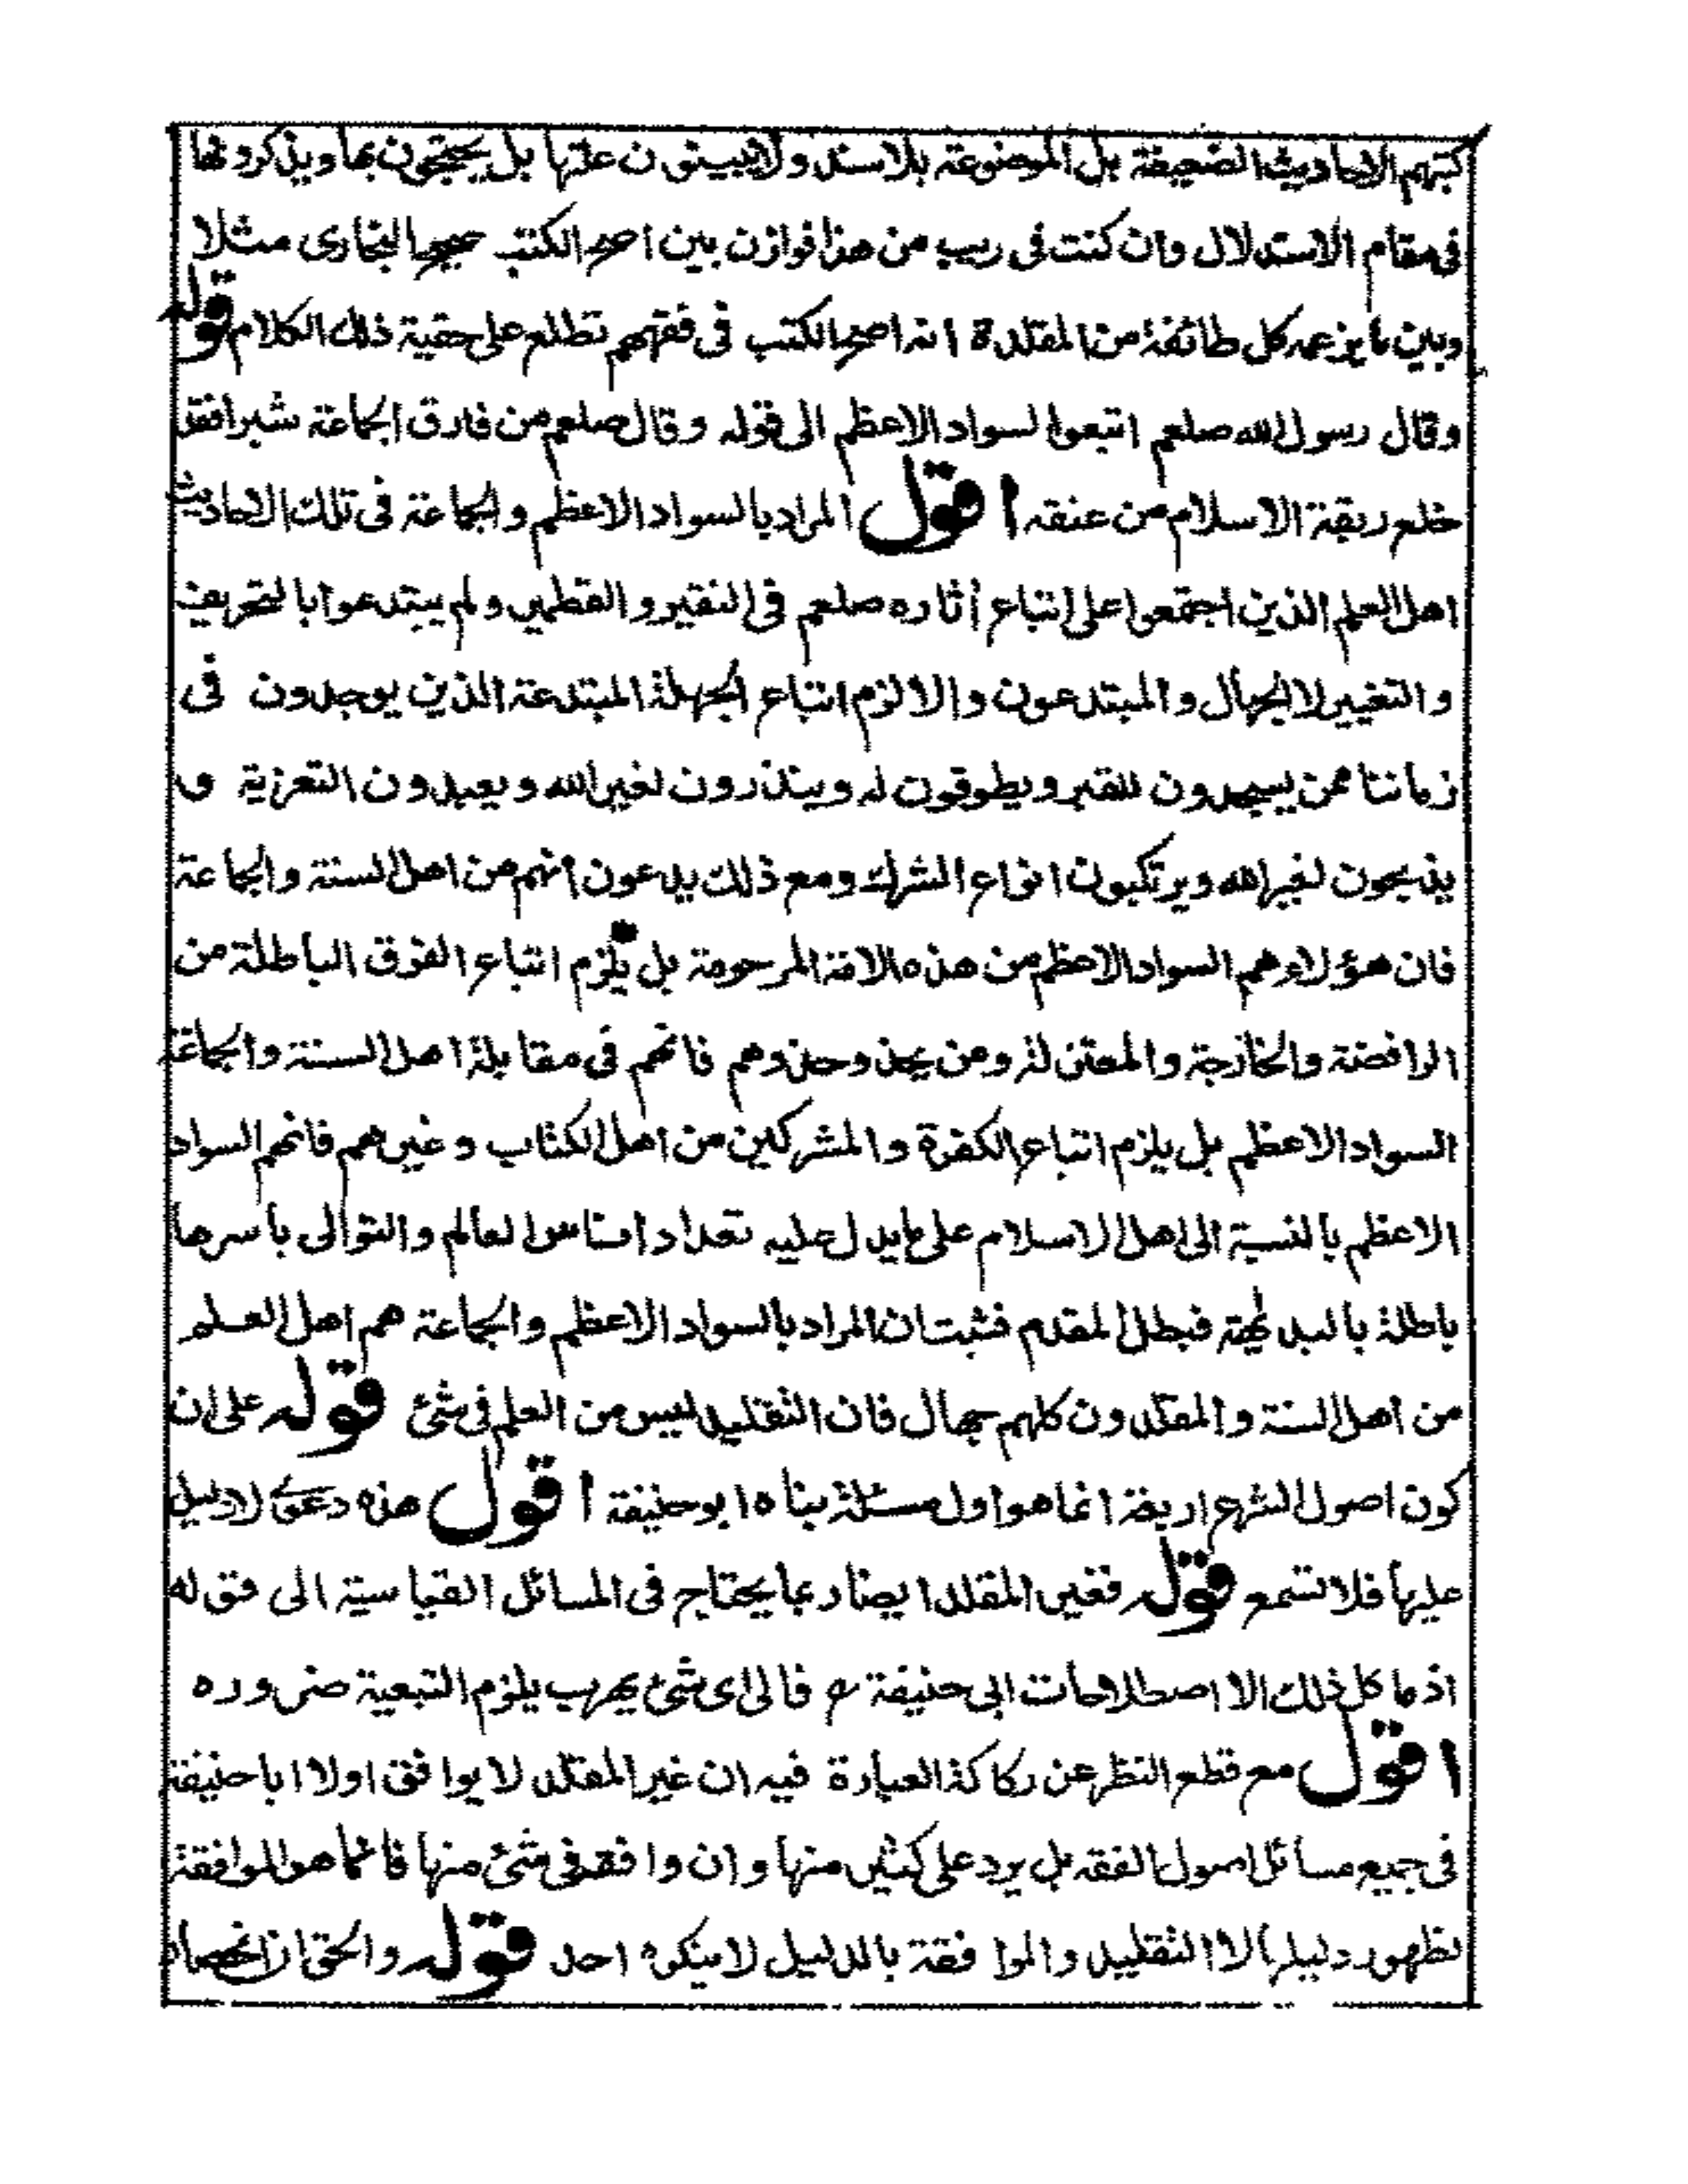 كتبهم الاحاديث الضعيفة بل الموضوعة بلا سند ولا يبينون علتها بل يحتجون بها ويذكرونها
فى مقام الاستدلال وان كنت فى ريب من هذا فوازن بين اصح الكتب صحيح البخارى مثلا
وبين ما يزعمه كل طائفة من المقلدة انه اصح الكتب فى فقههم تطلع على حقية ذلك الكلام قوله
وقال رسول الله صلعم اتبعوا السواد الاعظم الى قوله وقال صلعم من فارق الجماعة شبرا فقد
خلع ربقة الاسلام من عنقه اقول المراد بالسواد الاعظم والجماعة فى تلك الاحاديث
اهل العلم الذين اجتمعوا على اتباع اثاره صلعم فى النقير والقطمير ولم يبتدعوا بالتحريف
والتغيير لا الجهال والمبتدعون والا لزم اتباع الجهلة المبتدعة الذين يوجدون فى
زماننا ممن يسجدون للقبر ويطوفون له وينذرون لغير الله ويعبدون التعزية و
يذبحون لغير الله ويرتكبون انواع الشرك ومع ذلك يدعون انهم من اهل السنة والجماعة
فان هؤلاء هم السواد الاعظم من هذه الامة المرحومة بل يلزم اتباع الفرق الباطلة من
الرافضة والخارجة والمعتزلة ومن يحذو حذوهم فانهم فى مقابلة اهل السنة والجماعة
السواد الاعظم بل يلزم اتباع الكفرة والمشركين من اهل الكتاب وغيرهم فانهم السواد
الاعظم بالنسبة الى اهل الاسلام على ما يدل عليه تعداد اناس العالم والتوالى باسرها
باطلة بالبداهة فبطل المقدم فثبت ان المراد بالسواد الاعظم والجماعة هم اهل العلم
من اهل السنة والمقلدون كلهم جهال فان التقليد ليس من العلم فى شئ قوله على ان
كون اصول الشرع اربعة انما هو اول مسئلة بناه ابو حنيفة اقول هذه دعوى لا دليل
عليها فلا تسمع قوله فغير المقلد ايضا ربما يحتاج فى المسائل القياسية الى قوله
اذ ما كل ذلك الا اصطلاحات ابى حنيفة رح فالى اى شئ يهرب يلزم التبعية ضروره
اقول مع قطع النظر عن ركاكة العبارة فيه ان غير المقلد لا يوافق اولا ابا حنيفة
فى جميع مسائل اصول الفقه بل يرد على كثير منها وان وافقه فى شئ منها فانما هو الموافقة
لظهور دليلها لا التقليد والموافقة بالدليل لا ينكره احد قوله والحق ان انحصار